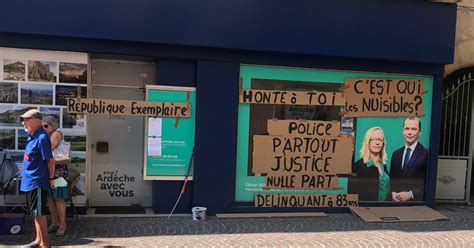 République Exemplaire
pour l'
Ardèche
avec vous
HONTE à TOI
Ardèche
POLICE
PARTOUT
JUSTICE
NULLE PART
DELINQUANT à 83
C'EST QUI
les NUISIBLES?